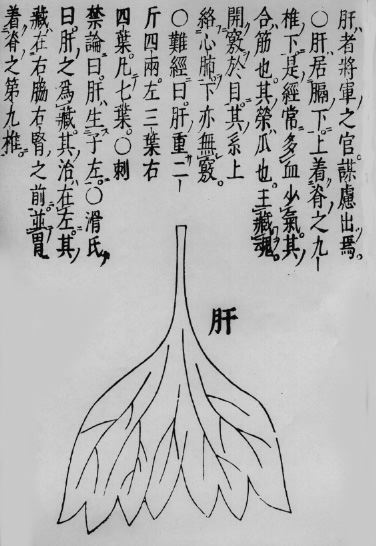 肝者將軍之官。謀慮出焉。
○肝居膈下。上着脊之九
椎下。是經常多血少氣。其
合筋也。其榮爪也。主藏魂。
開竅於目。其系上
絡心肺。下亦無竅。
○難經曰。肝重二
斤四兩。左三葉右
四葉。凡七葉。○刺
禁論曰。肝生于左。○滑氏
曰。肝之為藏。其治在左。其
藏在右脇右腎之前。並胃
着脊之第九椎。
肝